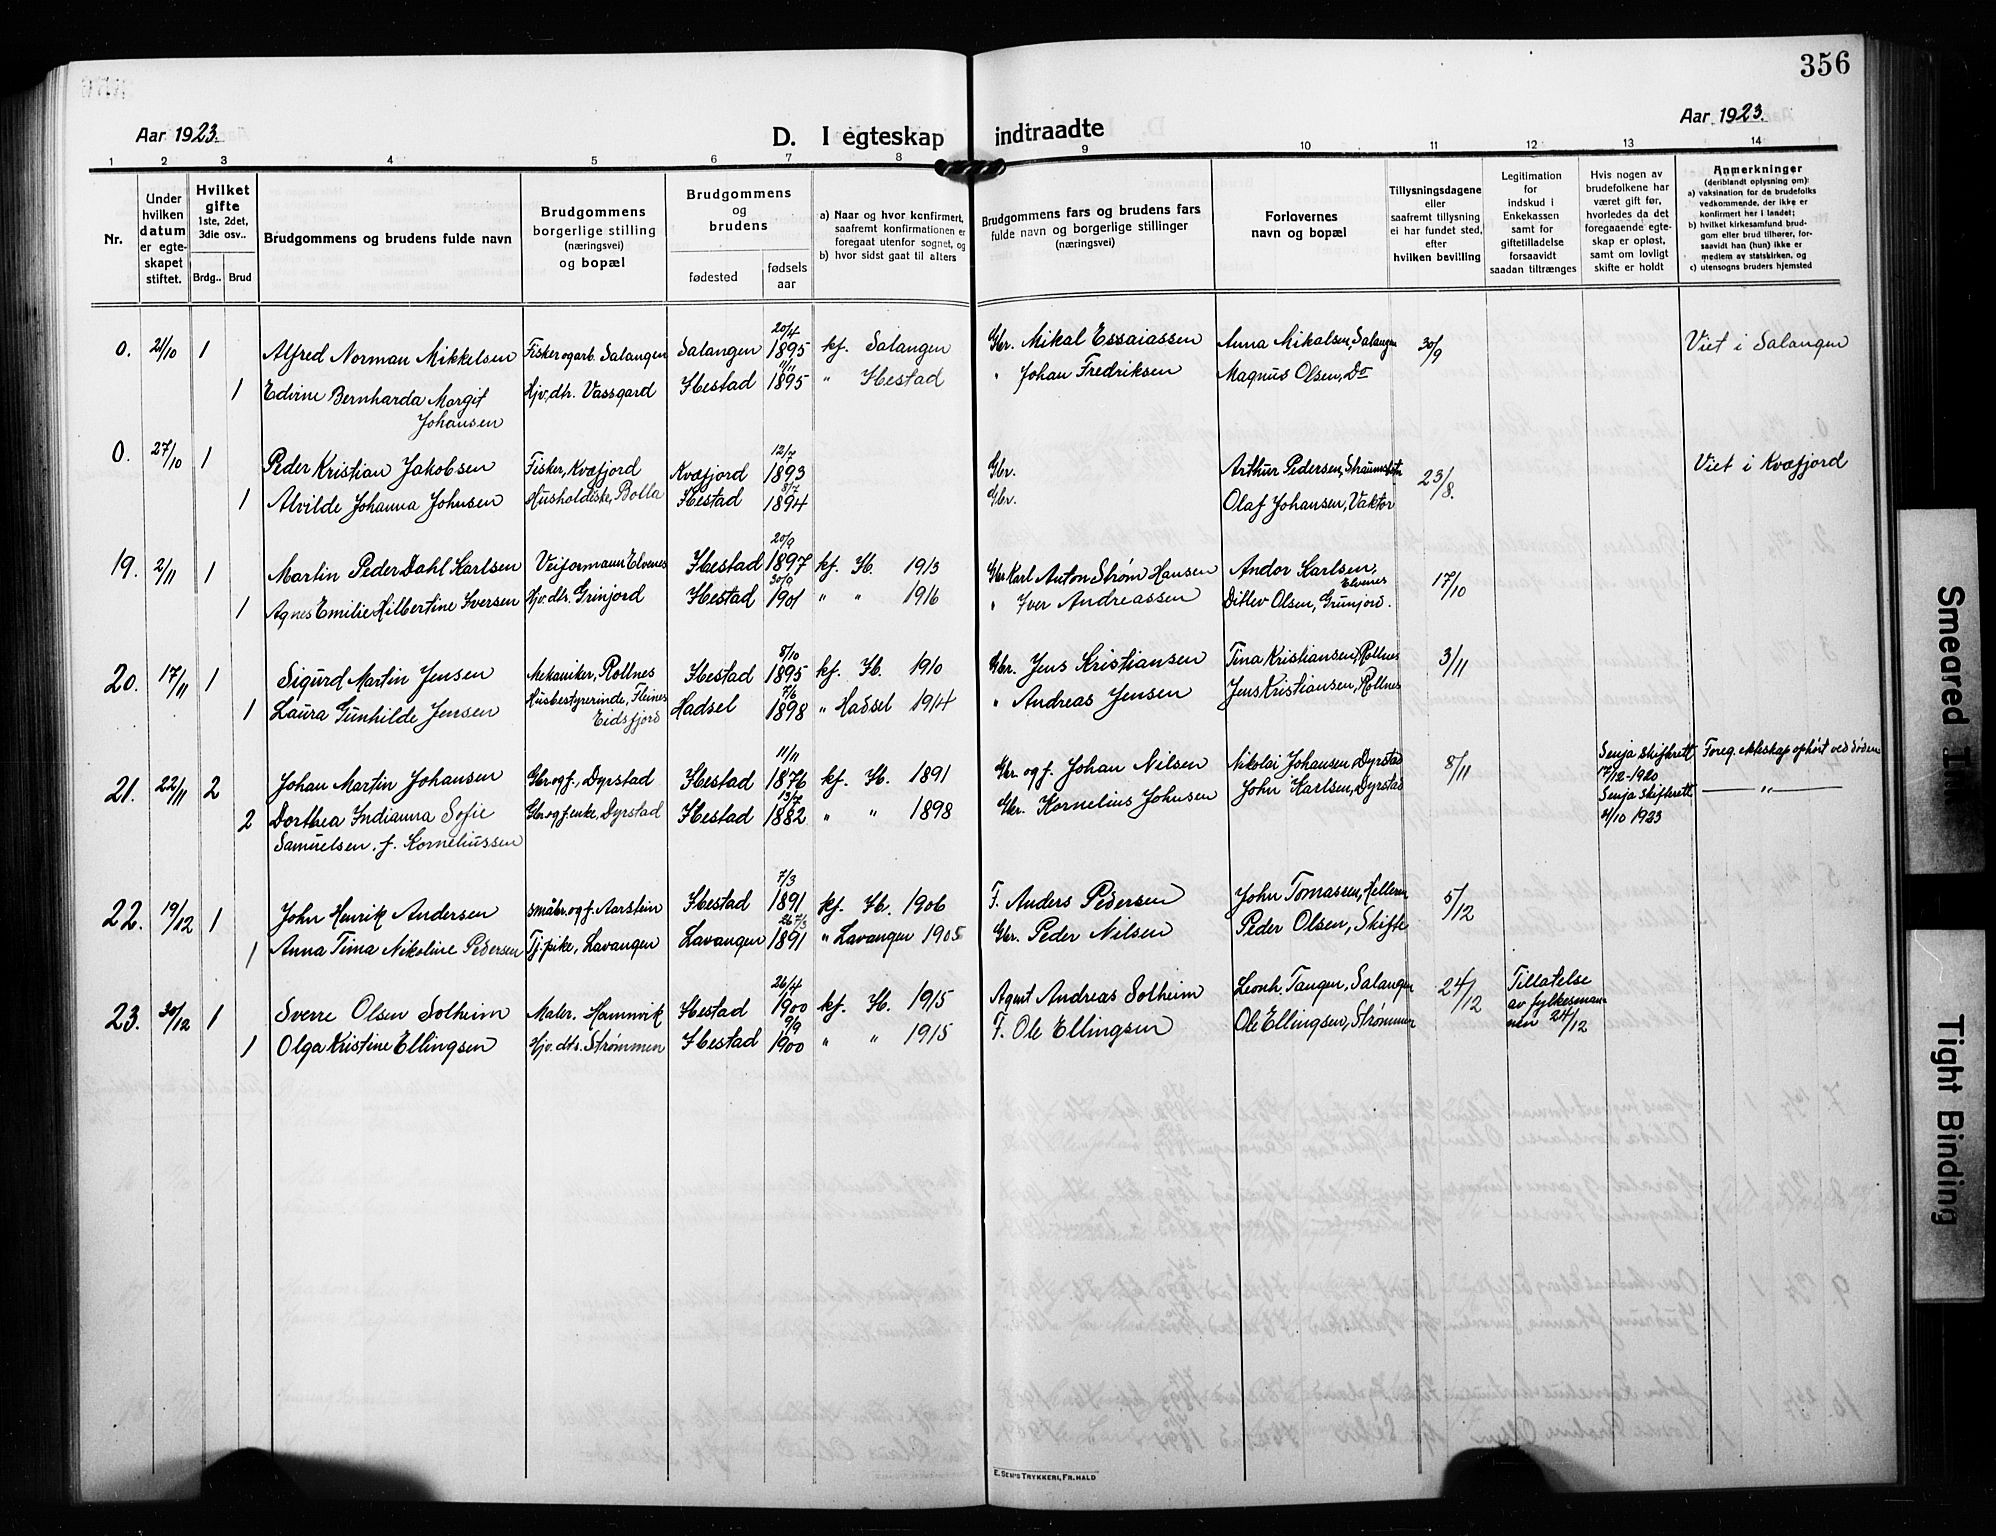 356
Aar 1923.
D. I egteskap indtraadte
Aar 1923.
1 2 3 4 5 6 7 8 9 10 11 12 13 14
Nr.
Under hvilken datum er egte- skapet stiftet.
Hvilket gifte 1ste, 2det, 3die osv..
Brdg.. Brud
Brudgommens og brudens fulde navn
Brudgommens borgerlige stilling (næringsvei) og bopæl
Brudgommens og brudens
fødested
fødsels aar
a) Naar og hvor konfirmert, saafremt konfirmationen er foregaat utenfor sognet, og
b) hvor sidst gaat til alters
Brudgommens fars og brudens fars fulde navn og borgerlige stillinger (næringsvei)
Forlovernes navn og bopæl
Tillysningsdagene eller saafremt tillysning ei har fundet sted, efter hvilken bevilling
Legitimation for indskud i Enkekassen samt for giftetilladelse forsaavidt saadan tiltrænges
Hvis nogen av brudefolkene har været gift før, hvorledes da det foregaaende egte- skap er opløst, samt om lovligt skifte er holdt
Anmerkninger (deriblandt oplysning om):
a) vaksination for de brudefolks vedkommende, der ikke er konfirmert her i landet;
b) hvilket kirkesamfund brud- gom eller brud tilhører, for- saavidt han (hun) ikke er medlem av statskirken, og
c) utensogns bruders hjemsted
0. 21/10 1 Alfred Norman Mikkelsen Fisker og arb. Salangen Salangen 20/4 1895 kf. Salangen Gbr. Mikal Essaiassen Anna Mikalsen, Salangen 30/9 Viet i Salangen
1 Edvine Bernharda Margit Johansen Hjv. dtr. Vassgard Ibestad 11/11 1895 " Ibestad " Johan Fredriksen Magnus Olsen, Do
0. 27/10 1 Peder Kristian Jakobsen Fisker, Kvæfjord Kvæfjord 12/7 1893 Gbr. Arthur Pedersen, 23/8. Viet i Kvæfjord
1 Alvilde Johanna Johnsen Husholdiske, Bolla Ibestad 8/7 1894 Gbr. Olaf Johansen, Vaktor
19. 2/11 1 Martin Peder Dahl Karlsen Veiformann Elvenes Ibestad 20/9 1897 kf. Ib. 1913 Gbr Karl Anton Strøm Hansen Andor Karlsen, Elvenes 17/10
1 Agnes Emilie Hilbertine Iversen Hjv. dtr. Grinjord Ibestad 30/9 1901 " " 1916 " Iver Andreassen Ditlev Olsen, Grunjord.
20. 17/11 1 Sigurd Martin Jensen Mekaniker, Rollnes Ibestad 8/10 1895 kf. Ib. 1910 Gbr. Jens Kristiansen Tina Kristiansen, Rollnes 3/11
1 Laura Gunhilde Jensen Husbestyrerinde, Fleines Eidsfjord Hadsel 7/6 1898 " Hadsel 1914 " Andreas Jensen Jens Kristiansen, Rollnes
21. 22/11 2 Johan Martin Johansen Gbr og f., Dyrstad Ibestad 11/11 1876 kf. Ib. 1891 Gbr. og f. Johan Nilsen Nikolai Johansen, Dyrstad 8/11 Senja skifterett 17/12-1920 Foreg. ekteskap ophørt ved døden
2 Dorthea Indianna Sofie Samuelsen. f. Korneliussen Gbr og f enke, Dyrstad Ibestad 13/7 1882 " " 1898 Gbr. Kornelius Johnsen John Karlsen, Dyrstad Senja skifterett 4/10 1923 — " —
22. 19/12 1 John Henrik Andersen småbr. og f. Aarstein Ibestad 7/3 1891 kf. Ib. 1906 F. Anders Pedersen John Tomassen, Helleren 5/12
1 Anna Tina Nikoline Pedersen Tj. pike, Lavangen Lavangen 26/3 1891 " Lavangen 1905 Gbr. Peder Nilsen Peder Olsen, Skifte
23. 30/12 1 Sverre Olsen Solheim Maler, Hamnvik Ibestad 26/4 1900 kf. Ib. 1915 Agent Andreas Solheim Leonh. Tangen, Salangen 24/12 Tillatelse av fylkesman- nen 24/12
1 Olga Kristine Ellingsen Hjv. dtr. Strømmen Ibestad 9/9 1900 " " 1915 F. Ole Ellingsen Ole Ellingsen, Strømmen
E. SEM'S TRYKKERI, FR. HALD
Smeared Ink
Tight Binding